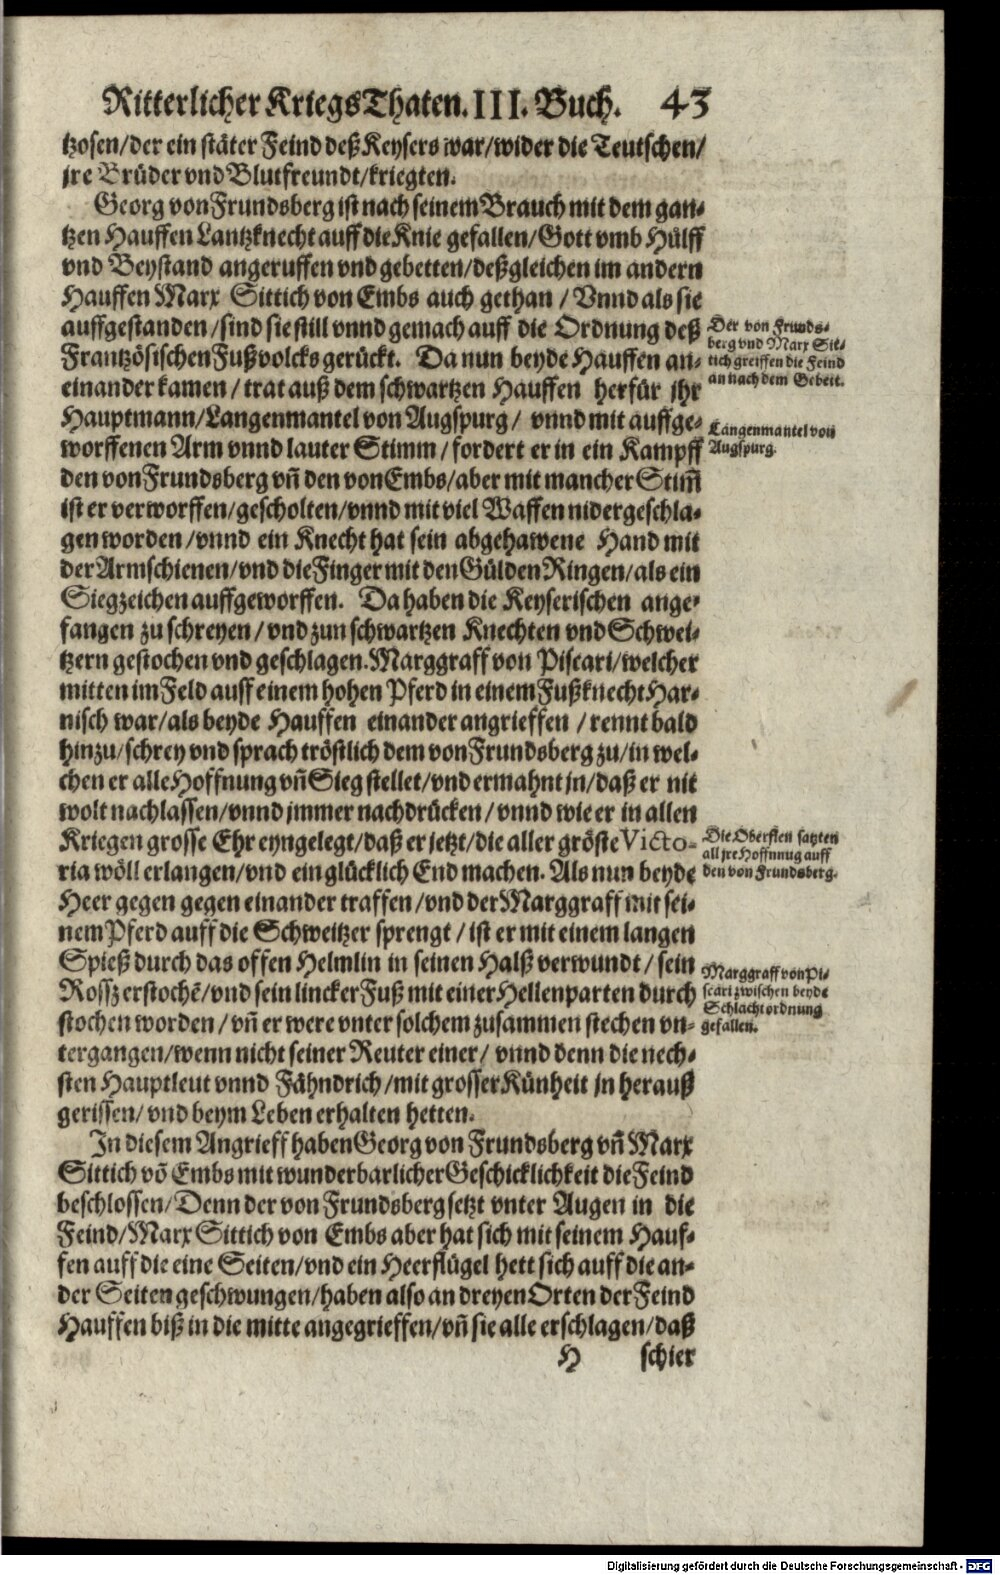 Ritterlicher Kriegs Thaten. III. Buch. 43
tzosen/der ein stäter Feind deß Keysers war/wider die Teutschen/
jre Brüder vnd Blutfreundt/kriegten.
Georg von Frundsberg ist nach seinem Brauch mit dem gan-
tzen Hauffen Lantzknecht auff die Knie gefallen/Gott vmb Hülff
vnd Beystand angeruffen vnd gebetten/deßgleichen im andern
Hauffen Marx Sittich von Embs auch gethan / Vnnd als sie
auffgestanden/sind sie still vnnd gemach auff die Ordnung deß
Frantzösischen Fußvolcks gerückt. Da nun beyde Hauffen an-
einander kamen / trat auß dem schwartzen Hauffen herfür jhr
Hauptmann/Langenmantel von Augspurg/ vnnd mit auffge-
worffenen Arm vnnd lauter Stimm/fordert er in ein Kampff
den von Frundsberg vñ den von Embs/aber mit mancher Stim̃
ist er verworffen/gescholten/vnnd mit viel Waffen nidergeschla-
gen worden/vnnd ein Knecht hat sein abgehawene Hand mit
der Armschienen/vnd die Finger mit den Gülden Ringen/als ein
Siegzeichen auffgeworffen. Da haben die Keyserischen ange-
fangen zu schreyen/vnd zun schwartzen Knechten vnd Schwei-
tzern gestochen vnd geschlagen. Marggraff von Piscari/welcher
mitten im Feld auff einem hohen Pferd in einem Fußknecht Har-
nisch war/als beyde Hauffen einander angrieffen / rennt bald
hinzu/schrey vnd sprach tröstlich dem von Frundsberg zu/in wel-
chen er alle Hoffnung vñ Sieg stellet/vnd ermahnt jn/daß er nit
wolt nachlassen/vnnd jmmer nachdrücken/vnnd wie er in allen
Kriegen grosse Ehr eyngelegt/daß er jetzt/die aller gröste Victo-
ria wöll erlangen/vnd ein glücklich End machen. Als nun beyde
Heer gegen gegen einander traffen/vnd der Marggraff mit sei-
nem Pferd auff die Schweitzer sprengt / ist er mit einem langen
Spieß durch das offen Helmlin in seinen Halß verwundt/sein
Rossz erstochẽ/vnd sein lincker Fuß mit einer Hellenparten durch
stochen worden/vñ er were vnter solchem zusammen stechen vn-
tergangen/wenn nicht seiner Reuter einer/ vnnd denn die nech-
sten Hauptleut vnnd Fähndrich/mit grosser Künheit jn herauß
gerissen/vnd beym Leben erhalten hetten.
In diesem Angrieff haben Georg von Frundsberg vñ Marx
Sittich võ Embs mit wunderbarlicher Geschicklichkeit die Feind
beschlossen/Denn der von Frundsberg setzt vnter Augen in die
Feind/Marx Sittich von Embs aber hat sich mit seinem Hauf-
fen auff die eine Seiten/vnd ein Heerflügel hett sich auff die an-
der Seiten geschwungen/haben also an dreyen Orten der Feind
Hauffen biß in die mitte angegrieffen/vñ sie alle erschlagen/daß
H schier
Der von Frunds-
berg vnd Marx Sit-
tich greiffen die Feind
an nach dem Gebett.
Langenmantel von
Augspurg.
Die Obersten satzten
all jre Hoffnnug auff
den von Frundsberg.
Marggraff von Pi-
scari zwischen beyde
Schlachtordnung
gefallen.
Digitalisierung gefördert durch die Deutsche Forschungsgemeinschaft - DFG